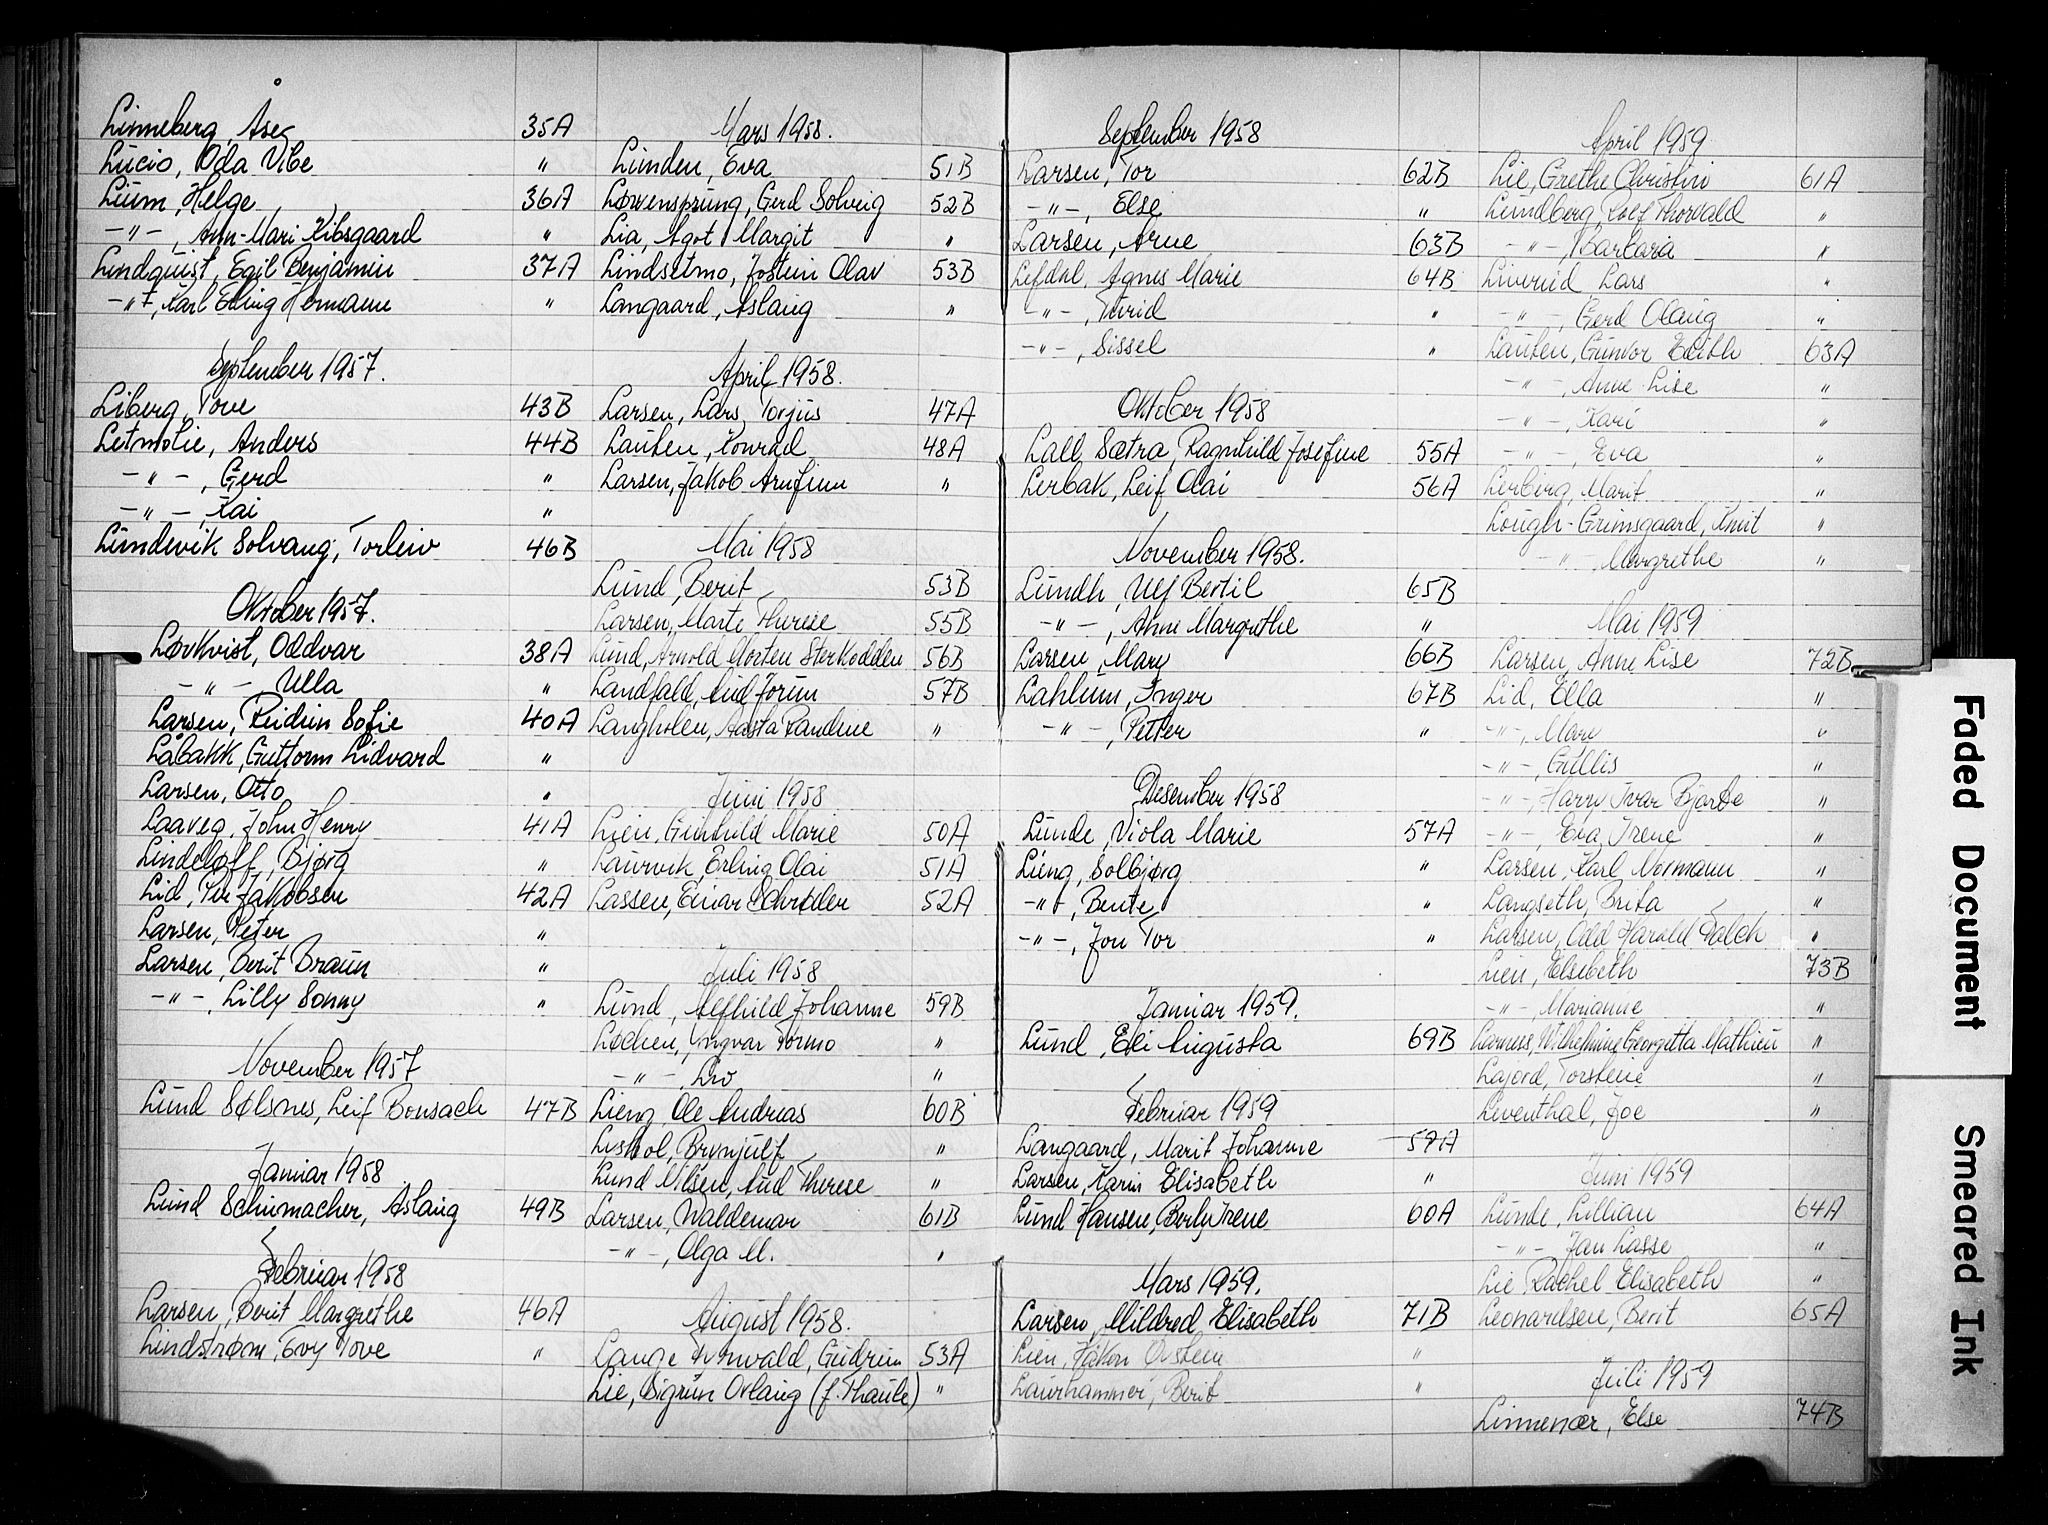 Linneberg, Åse 35A
Lucio, Oda Vibe "
Lium, Helge 36A
-"-, Ann-Mari Kibsgaard "
Lindquist, Egil Benjamin 37A
-"-, Karl Erling Hermann "
September 1957.
Liberg, Tove 43B
Letmolie, Anders 44B
-"-, Gerd "
-"-, Kai "
Lundevik Solvang, Torleiv 46B
Oktober 1957.
Løvkvist, Oddvar 38A
-"-, Ulla "
Larsen, Reidun Sofie 40A
Låbakk, Guttorm Lidvard "
Larsen, Otto "
Laaveg, John Henry 41A
Lindeløff, Bjørg "
Lid, Per Jakobsen 42A
Larsen, Peter "
Larsen, Berit Braun "
-"-, Lilly Sonny "
November 1957
Lund Sølsnes, Leif Bonsach 47B
Januar 1958
Lund Schumacher, Aslaug 49B
Februar 1958
Larsen, Berit Margrethe 46A
Lindstrøm, Evy Tove "
Mars 1958.
Lunden, Eva 51B
Løvensprung, Gerd Solveig 52B
Lia, Agot Margit "
Lindsetmo, Jostein Olav 53B
Langaard, Aslaug "
April 1958.
Larsen, Lars Torjus 47A
Lauten, Konrad 48A
Larsen, Jakob Arnfinn "
Mai 1958
Lund, Berit 53B
Larsen, Marte Therese 55B
Lund, Arnold Morten Sterkodden 56B
Landfald, Aud Jorun 57B
Langholen, Aasta Randine "
Juni 1958
Lien, Gunhild Marie 50A
Laurvik, Erling Olai 51A
Lassen, Einar Schrøder 52A
Juli 1958
Lund, Alfhild Johanne 59B
Løchen, Yngvar Tormo "
-"-, Liv "
Lieng, Ole Andreas 60B
Brynjulf "
Lund Nilsen, Aud Therese "
Larsen, Waldemar 61B
-"-, Olga M. "
August 1958.
Lange Gudrun 53A
Lie, Sigrun Ovlaug (f. Thaule) "
September 1958
Larsen, Tor 62B
-"-, Else "
Larsen, Arne 63B
Lefdal, Agnes Marie 64B
-"-, Turid "
-"-, Sissel "
Oktober 1958
Lall Sætra, Ragnhild Josefine 55A
Lerbak, Leif Olai 56A
November 1958.
Lundh, Ulf Bertil 65B
-"-, Anne Margrethe "
Larsen, Mary 66B
Lahlum, Inger 67B
-"-, Petter "
Desember 1958
Lunde, Viola Marie 57A
Lieng, Solbjørg "
-"-, Bente "
-"-, Jon Tor "
Januar 1959.
Lund, Eli Augusta 69B
Februar 1959
Langaard, Marit Johanne 59A
Larsen, Karin Elisabeth "
Lund Hansen, Berly Irene 60A
Mars 1959.
Larsen, Mildred Elisabeth 71B
Lien, Håkon Øistein "
Laurhammer, Berit "
April 1959
Lie, Grethe Christin 61A
Lundberg, Rolf Thorvald "
-"-, Barbara "
Liverud Lars "
-"-, Gerd Olaug "
Lauten, Gunvor Edith 63A
-"-, Anne Lise "
-"-, Kari "
-"-, Eva "
Lerberg, Marit "
Lough-Grimsgaard, Knut "
-"-, Margrethe "
Mai 1959
Larsen, Anne Lise 72B
Lid, Ella "
-"-, Mary "
-"-, Gullis "
-"-, Harry Ivar Bjarte "
-"-, Eva Irene "
Larsen, Karl Normann "
Langseth, Brita "
Larsen, Odd Harald Falch "
Lien, Elsebeth 73B
-"-, Marianne "
Wilhelmine Georgetta Mathieu "
Lajord, Torstein "
Leventhal, Joe "
Juni 1959
Lunde, Lillian 64A
-"- Jan Lasse "
Lie, Rachel Elisabeth "
Leonardsen, Berit 65A
Juli 1959
Linnenær, Else 74B
Faded Document
Smeared Ink